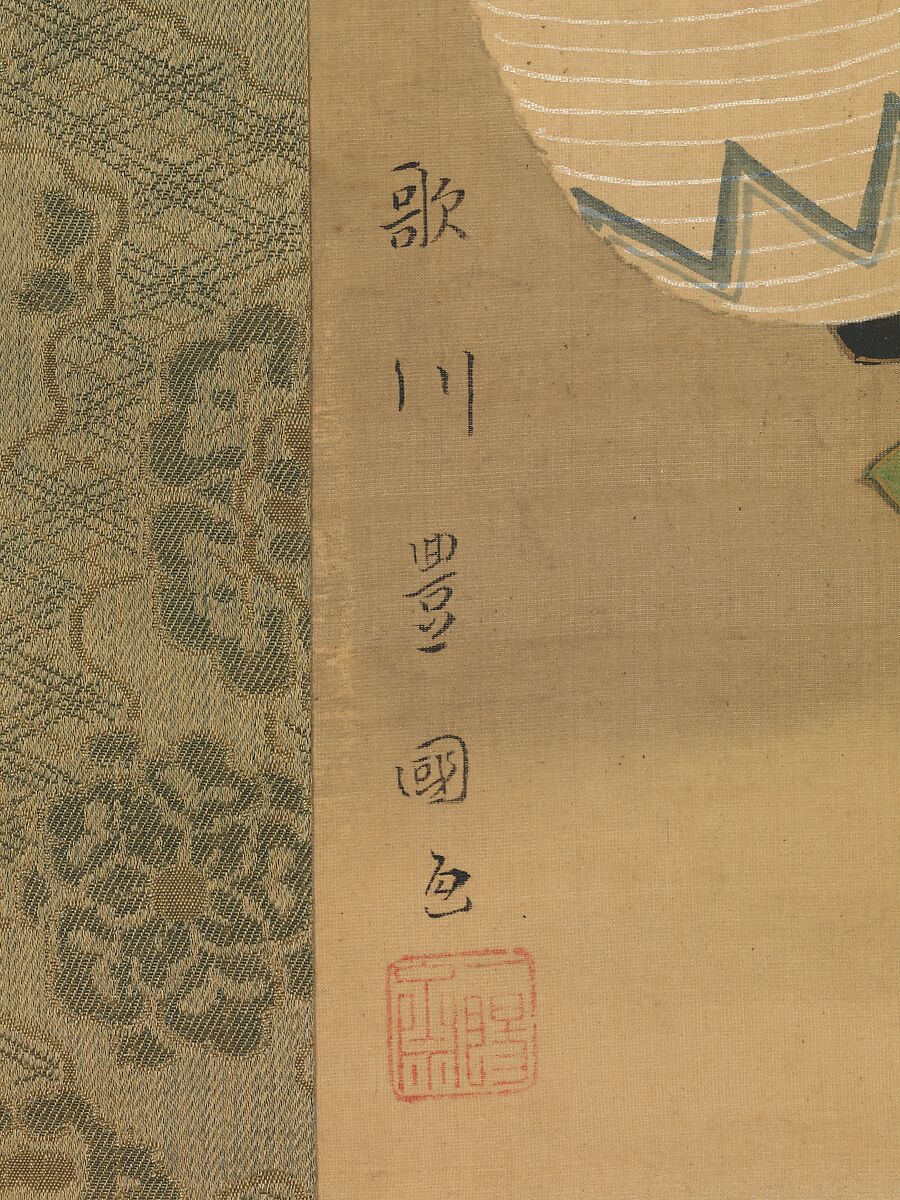 歌川豊國画